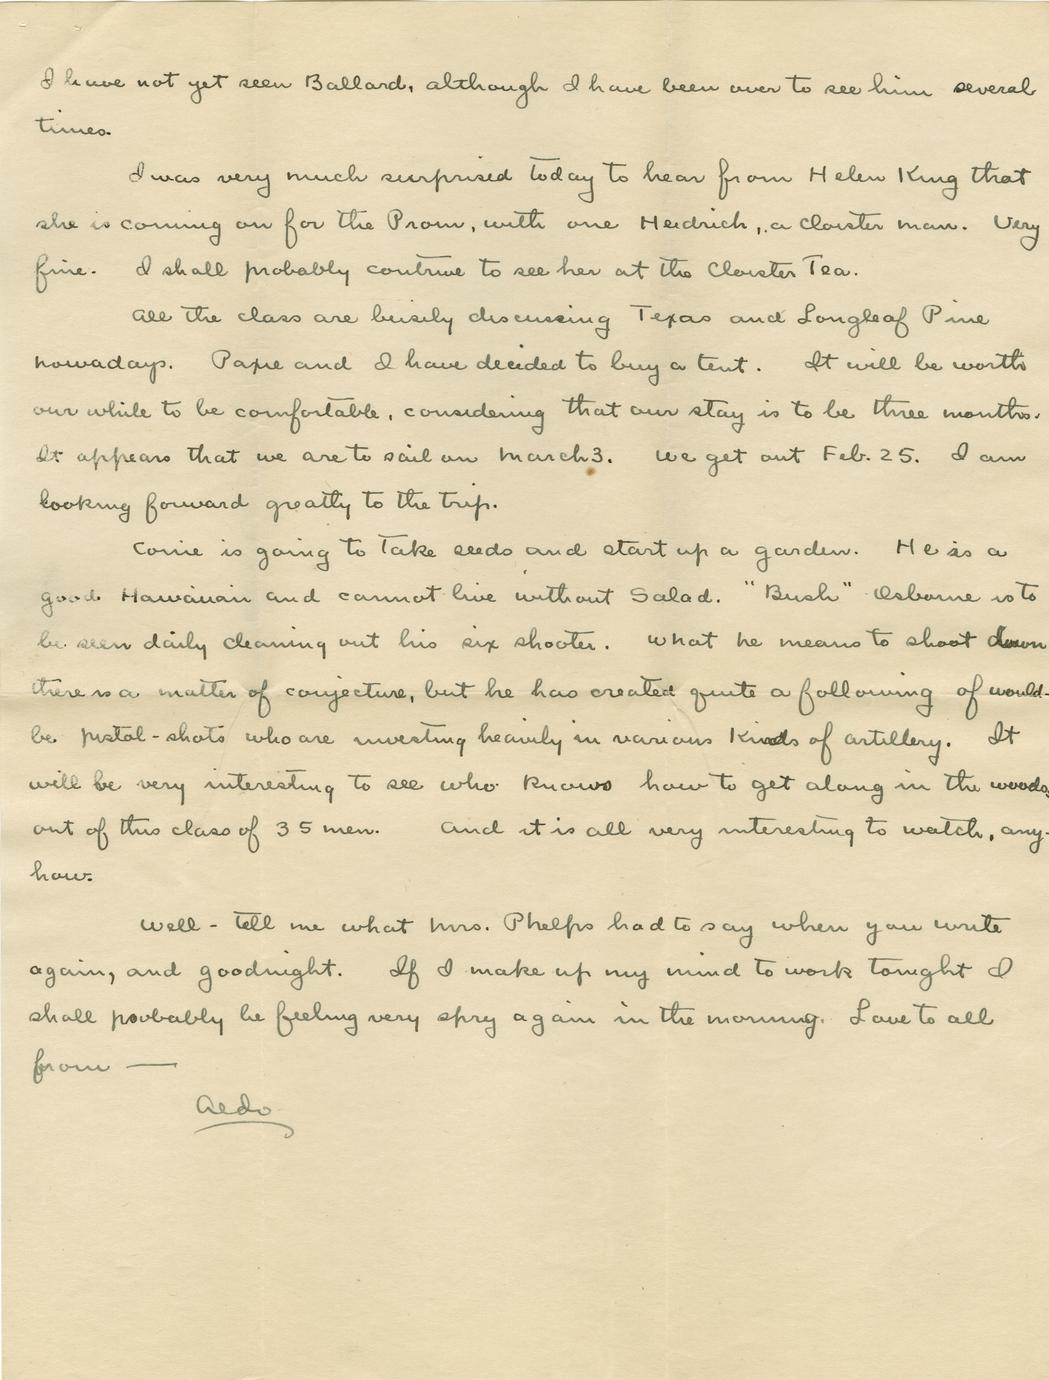 I have not yet seen Ballard, although I have been over to see him several
times.
I was very much surprised today to hear from Helen King that
she is coming on for the Prom, with one Heidrich, a Cloister man. Very
fine. I shall probably contrive to see her at the Cloister Tea.
All the class are busily discussing Texas and Longleaf Pine
nowadays. Paxie and I have decided to buy a tent. It will be worth
our while to be comfortable, considering that our stay is to be three months.
It appears that we are to sail on March 3. We get out Feb. 25. I am
looking forward greatly to the trip.
is going to take seeds and start up a garden. He is a
good Hawaiian and cannot live without Salad. "Bush" Osborne is to
be seen daily cleaning out his six shooter. What he means to shoot down
there is a matter of conjecture, but he has created quite a following of would-
be pistol-shots who are investing heavily in various kinds of artillery. It
will be very interesting to see who knows how to get along in the woods
out of this class of 35 men. And it is all very interesting to watch, any-
how.
Well - tell me what Mrs. Phelps had to say when you write
again, and goodnight. If I make up my mind to work tonight I
shall probably be feeling very spry again in the morning. Love to all
from —
Aldo